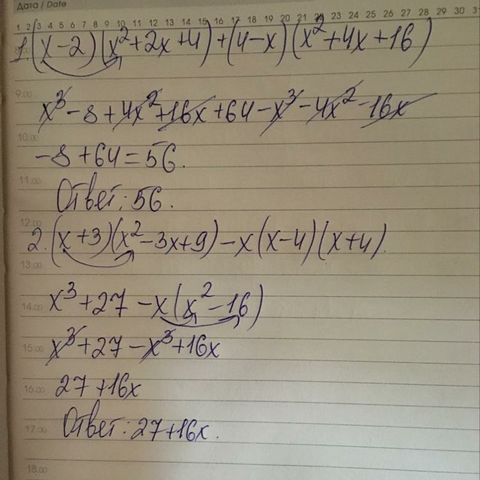 Дата / Date
1 2 3 4 5 6 7 8 9 10 11 12 13 14 15 16 17 18 19 20 21 22 23 24 25 26 27 28 29 30 31
1. (x-2)(x²+2x+4)+(4-x)(x²+4x+16)
9:00
x³-8+4x²+16x+64-x³-4x²-16x
10:00
-8+64=56.
11:00
Ответ: 56.
12:00
2. (x+3)(x²-3x+9)-x(x-4)(x+4).
13:00
x³+27-x(x²-16)
14:00
x³+27-x³+16x
15:00
27+16x
16:00
Ответ: 27+16x.
17:00
18:00